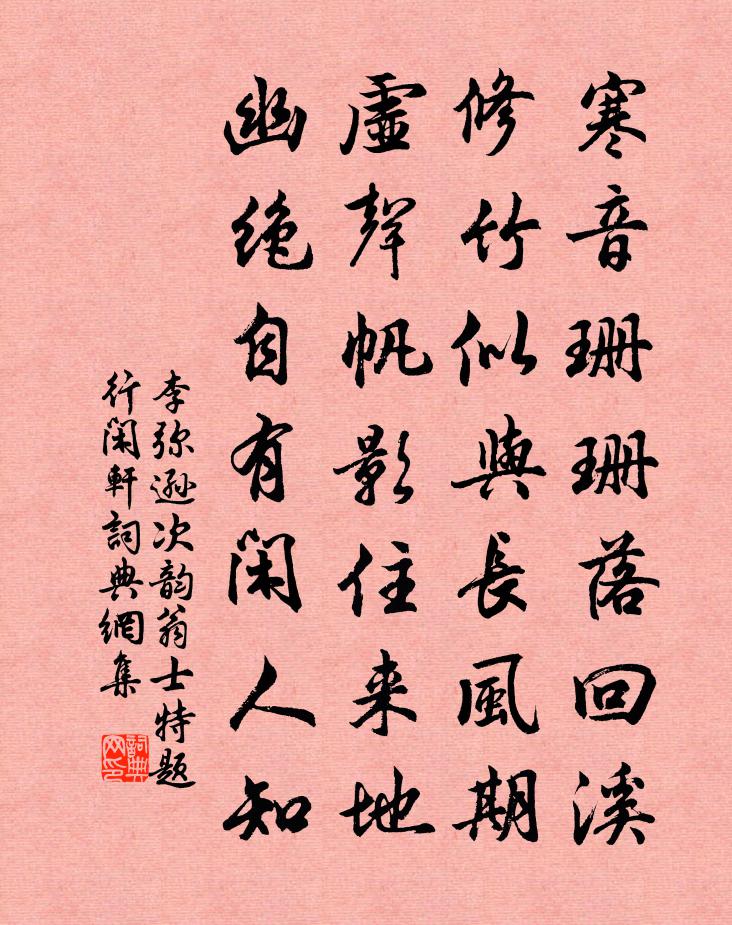 寒音珊珊落回溪
修竹似與長風期
虛聲帆影住来地
幽绝自有閑人知
李弥遜次韵翁士特題
行閑軒詞典網集
詞典网印